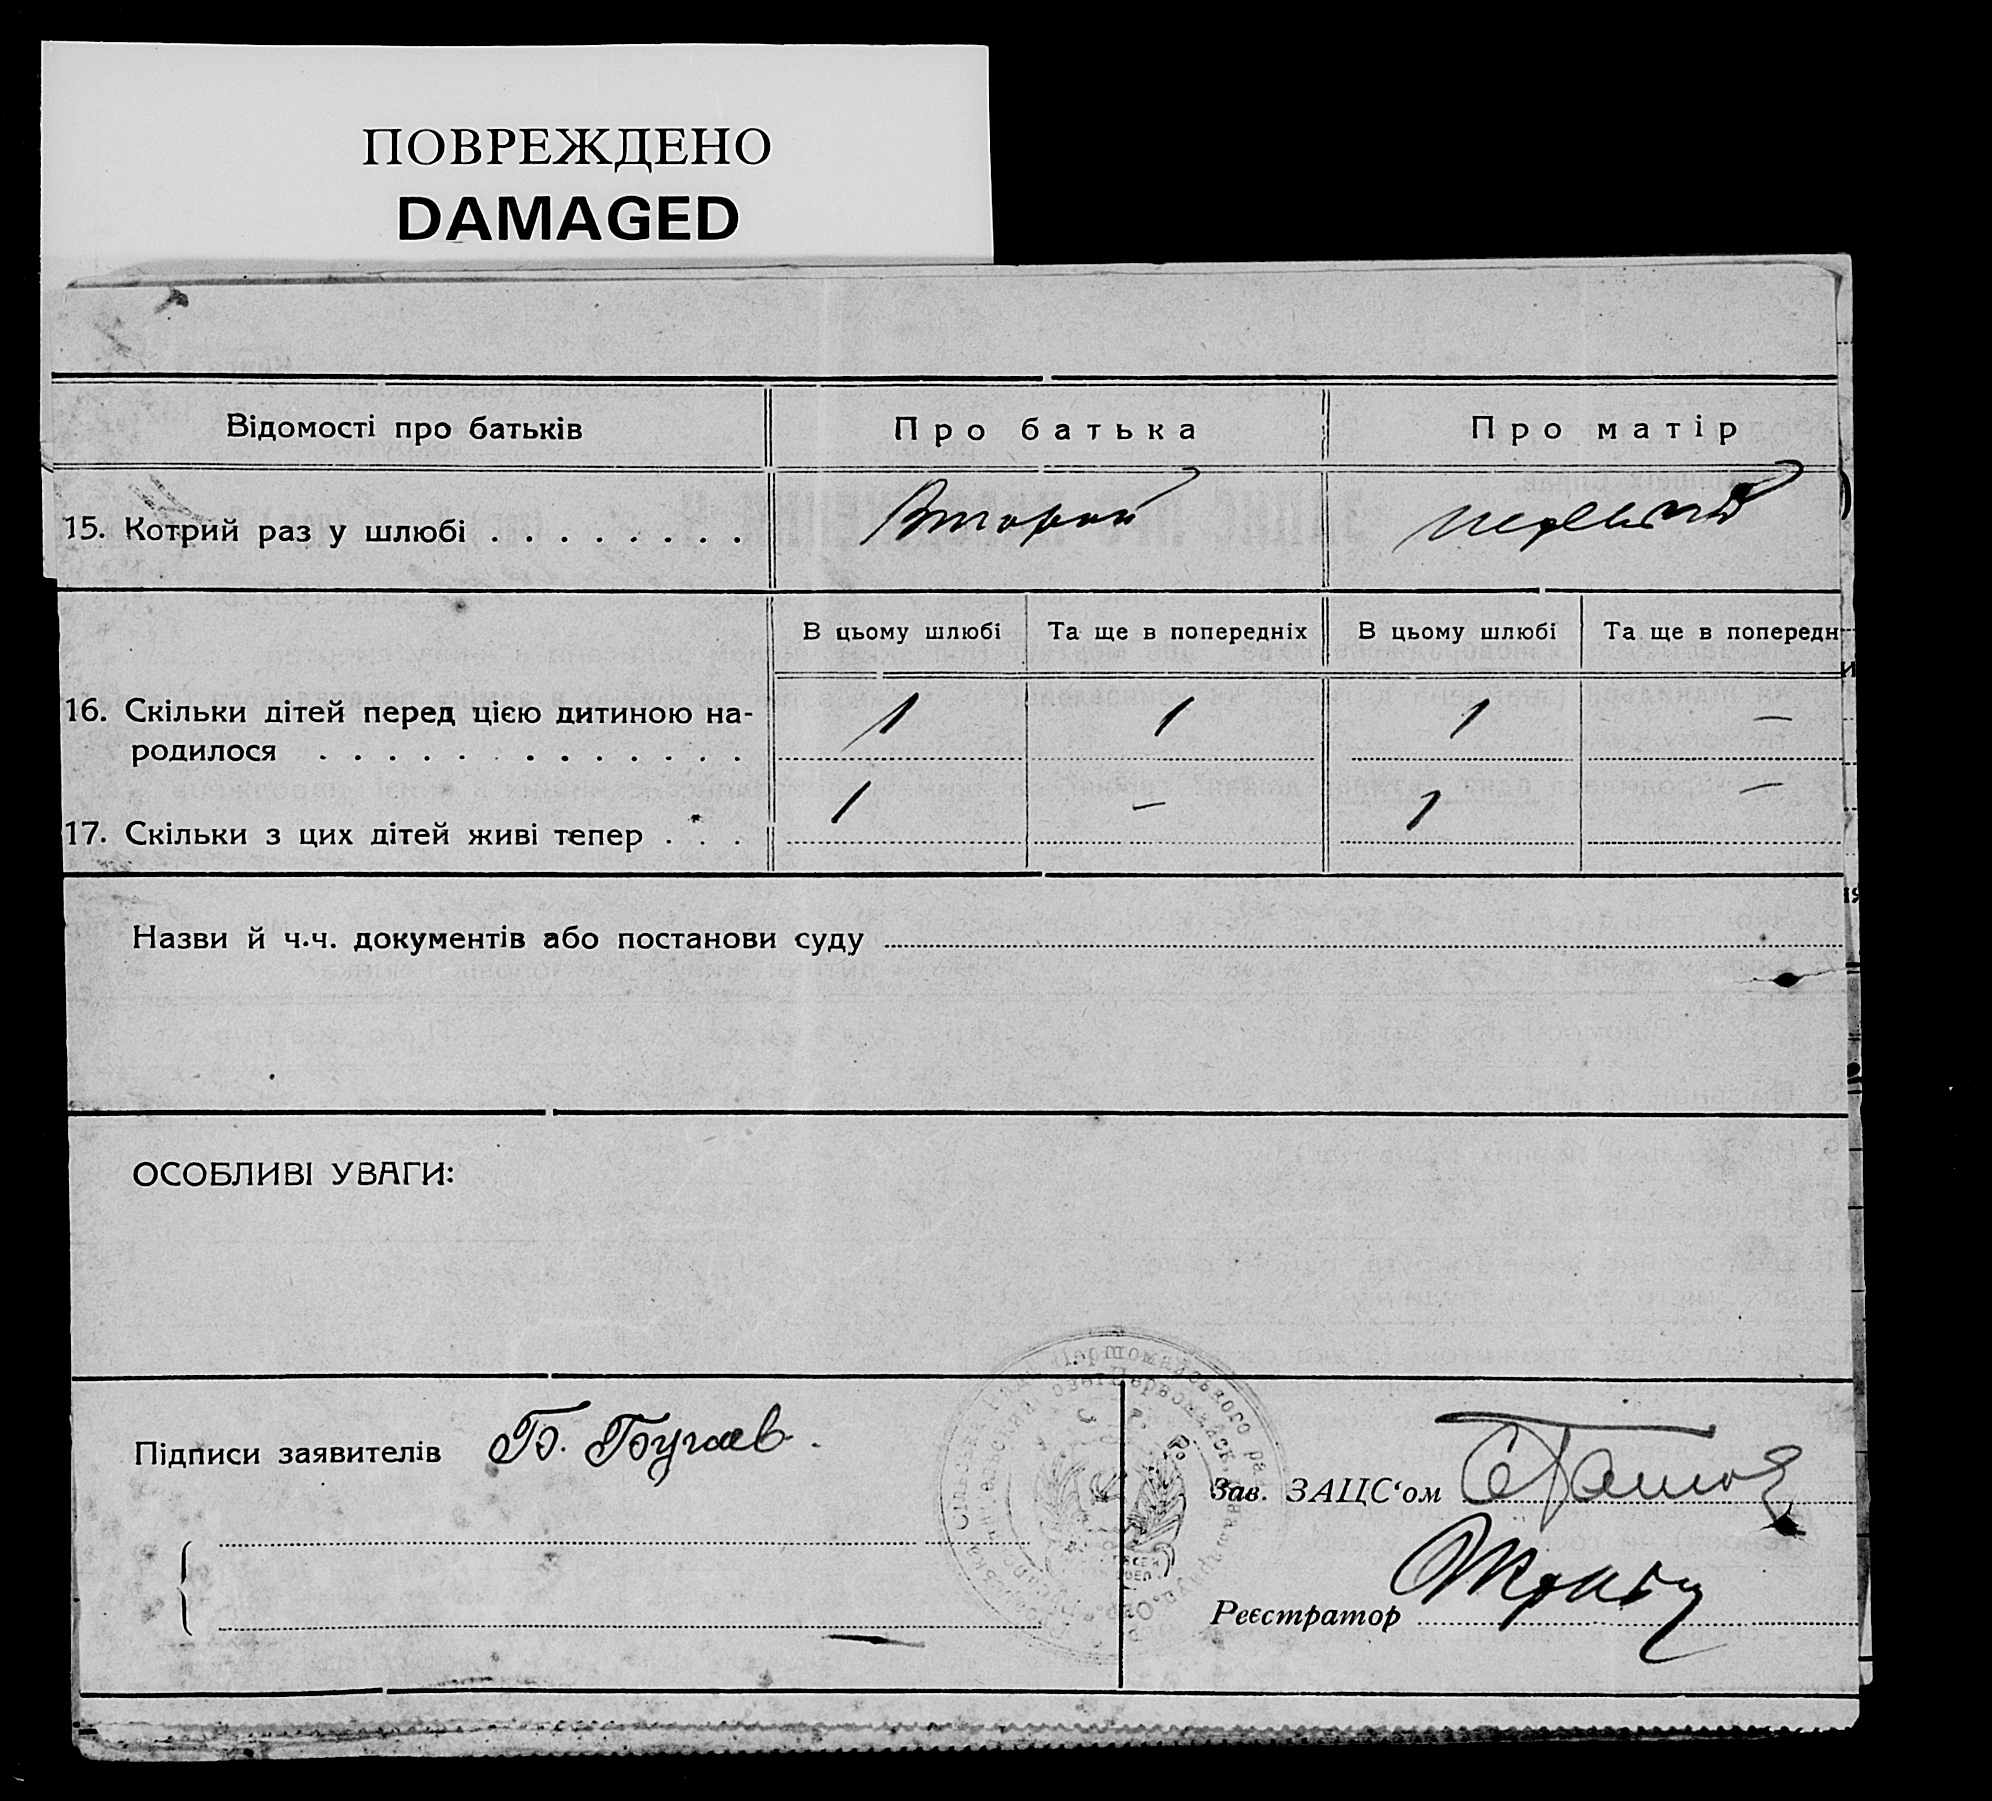 ПОВРЕЖДЕНО
DAMAGED
Відомості про батьків Про батька Про матір
15. Котрий раз у шлюбі . . . . . . . . . Второй первый
В цьому шлюбі Та ще в попередніх В цьому шлюбі Та ще в попередн
16. Скільки дітей перед цією дитиною на- 1 1 1 —
родилося . . . . . . . . . . . . .
17. Скільки з цих дітей живі тепер . . . 1 — 1 —
Назви й ч.ч. документів або постанови суду
ОСОБЛИВІ УВАГИ:
Підписи заявителів Б. Бугаев.
Зав. ЗАЦС‘ом
Реєстратор